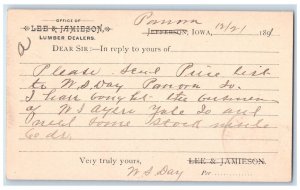 OFFICE OF
LEE & JAMIESON,
LUMBER DEALERS.
Panora
JEFFERSON, IOWA, 12/21 189
a
DEAR SIR:—In reply to yours of
Please Send Price list
to W. S. Day Panora Io.
I have bought the business
of W S Ayers Yale Io and
need some stock
Very truly yours, LEE & JAMIESON.
W S Day PER